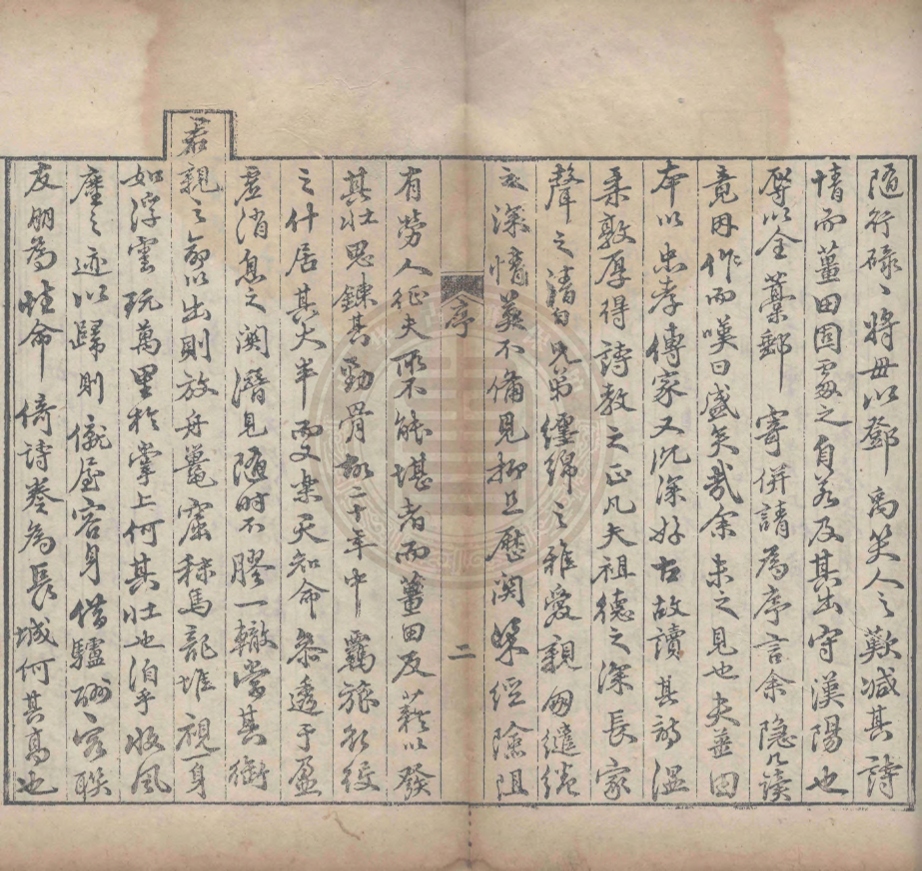 隨行碌々將毋以鄧禹笑人之歎減其詩
情而薑田固處之自若及其出守漢陽也
辱以全藁郵寄併請為序言余隱几讀
竟因作而嘆曰盛矣哉余未之見也夫薑田
本以忠孝傳家又沉深好古故讀其詩溫
柔敦厚得詩教之正凡夫祖德之深長家
聲之清白兄弟纏綿之雅愛親朋繾綣
之深情莫不備見抑且歷關梁經險阻
有勞人征夫所不能堪者而薑田反藉以發
其壯思鍊其勁骨故二十年中羈旅行役
之什居其大半而又樂天知命參透于盈
虛消息之關潛見隨時不膠一轍當其銜
君親之命以出則放舟鼉窟秣馬龍堆視一身
如浮雲玩萬里於掌上何其壯也洎乎收風
塵之迹以歸則僦屋容身借驢酬客聯
友朋為性命倚詩卷為長城何其高也
序
二